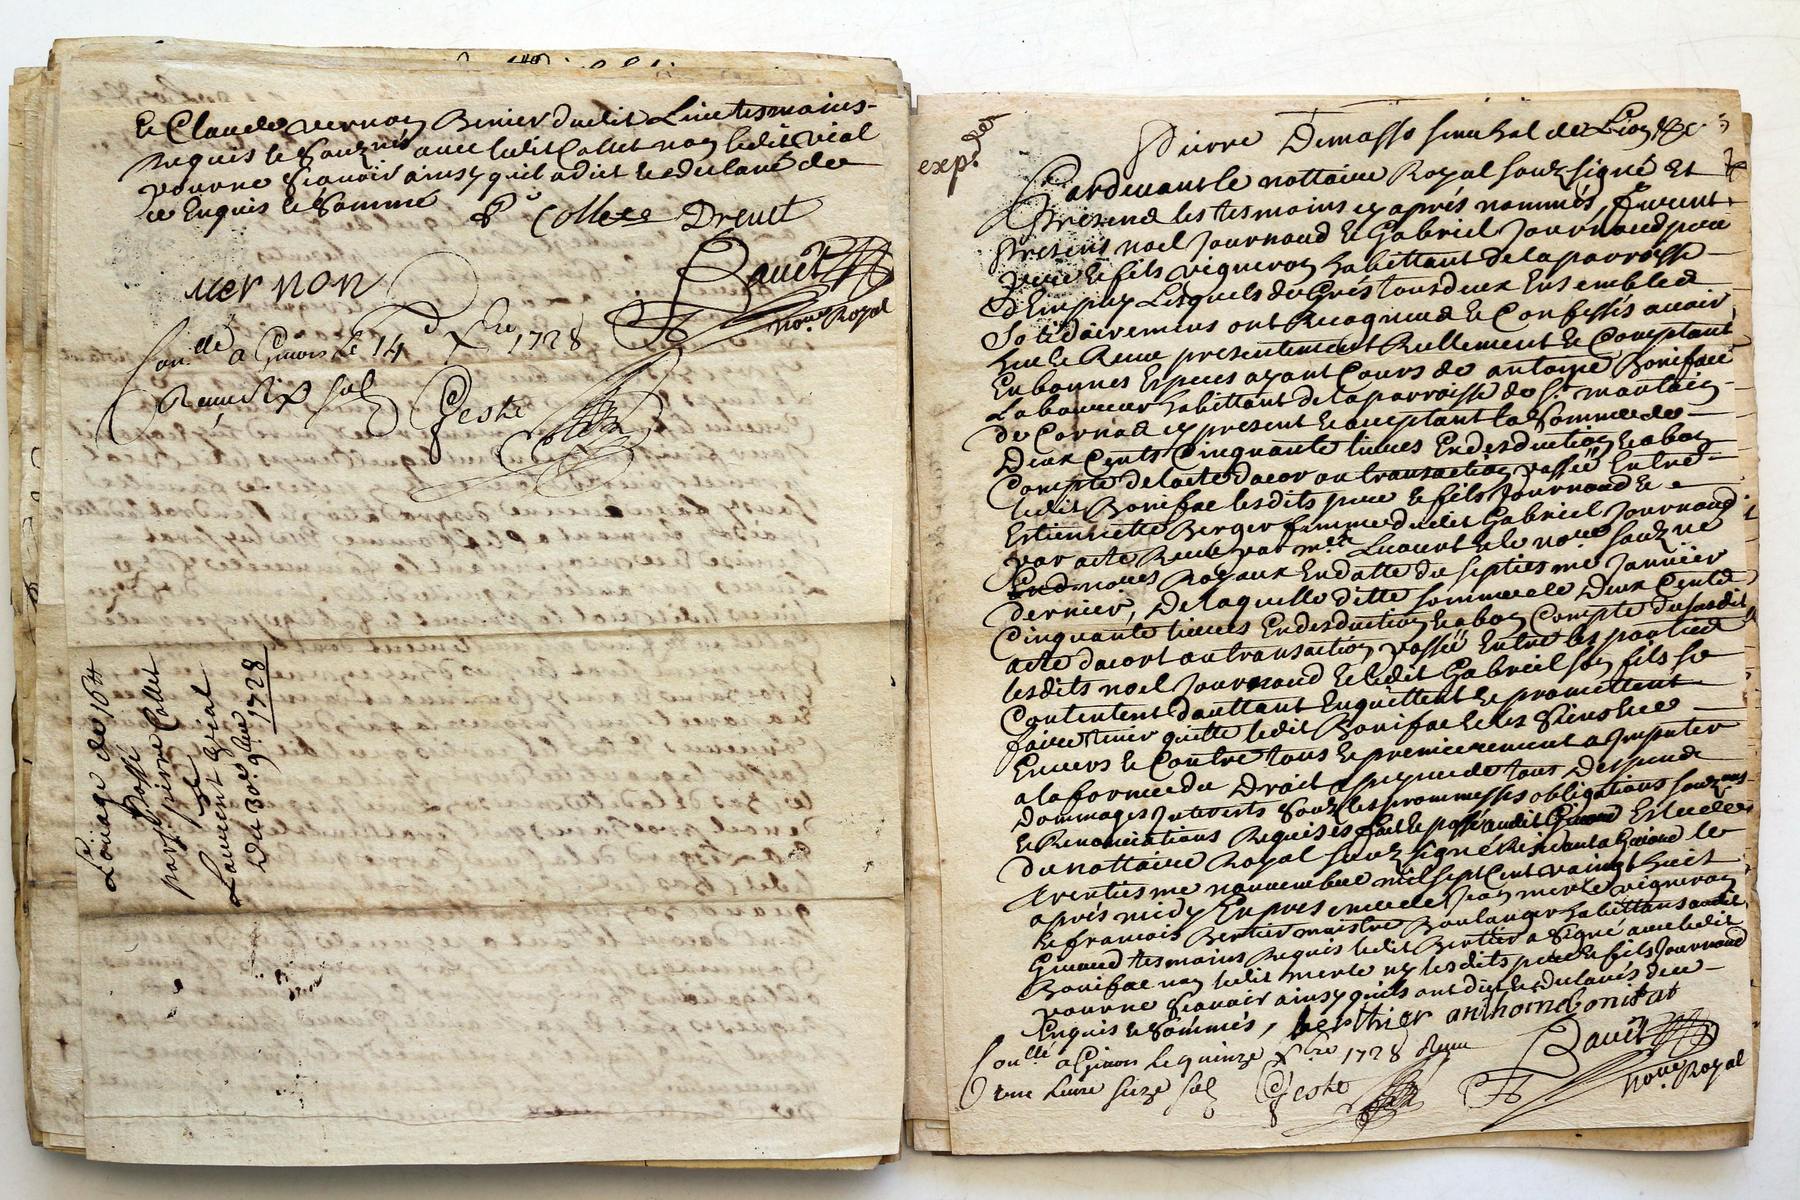 Et Claude vernon Benier dudit Lieu tesmoins
requis le Souz.nés avec ledit Collet non ledit vial
pour ne sçavoir ainsy quil a dit et declaré de
ce Enquis et Sommé P. Collet Dreuit
vernon
Bauet
no.re Royal
Con.llé a Givors le 14 d X.bre 1728
Receu dix sols Geste
Louage de 16 tt
passé
par s.r pierre Collet
a
Laurent Vial
Du 30.e 9.bre 1728
exp.
Pierre Demasso senechal de Lion &c
Pardevant le nottaire Royal souz signé Et
presence les tesmoins cy aprés nommés, furent
presens noel Journoud & Gabriel Journoud pere
& fils vigneron habittant de la parroisse
Lesquels de Gré tous deux Ensemble &
Solidairement ont Recognu & Confessés avoir
heu & Receu presentement Reellement & Comptant
En bonnes Especes ayant Cours de antoine Boniface
Laboureur habittant de la parroisse de S.t martin
de Cornas cy present & acceptant la Somme de
Deux Cents Cinquante livres En desduction & a bon
Compte de lacte dacor ou transaction passée Entre
ledit Bonifac lesdits pere & fils Journoud &
Estiennette Berger femme dudit Gabriel Journoud
par acte Receu par m.es & le no.re souz né
no.res Royaux En datte du septiesme Janvier
dernier, De laquelle ditte somme de Deux Cents
Cinquante livres En desduction & a bon Compte du susdit
acte dacort ou transaction passée Entre les parties
lesdits noel Journoud & ledit Gabriel son fils se
Contentent dauttant Enquittent & promettent
faire tenir quitte ledit Bonifac & les Siens
Envers & Contre tous & premierement a Imputer
a la forme du Droit a peyne de tous Despends
Dommages Interests Souz les prommesses obligations souz.ons
& Renonciations Requises fait & passé audit Givord Estude
du nottaire Royal souz signé Residant a Givord le
trentiesme novembre mil sept Cent vaingt huit
aprés midy En presence de Jean merle vigneron
& francois Bertier maistre Boulanger habittans audit
Givord tesmoins Requis ledit Bertier a Signé avec ledit
Bonifac non ledit merle ny lesdits pere & fils Journoud
pour ne Scavoir ainsy quils ont dit & declarés de ce
Enquis & Sommés, berthier anthoine bonifat
Bauet
no.re Royal
Con.llé a Givors le quinze X.bre 1728 Receu
une livre seize sols Geste